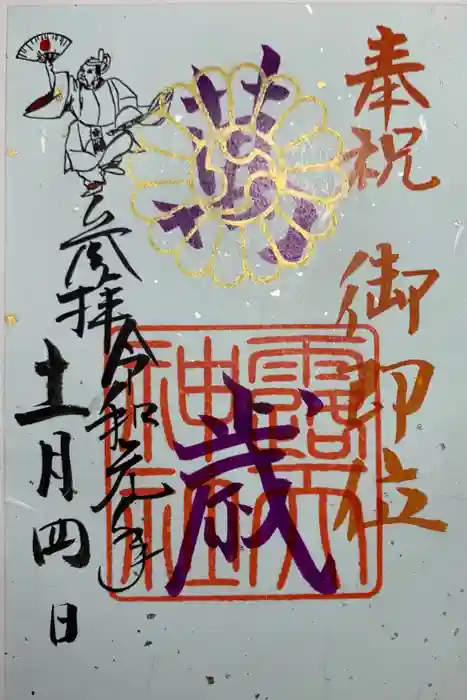 奉祝 御即位
萬歳
露天
神社
令和元年
参拝
十一月四日